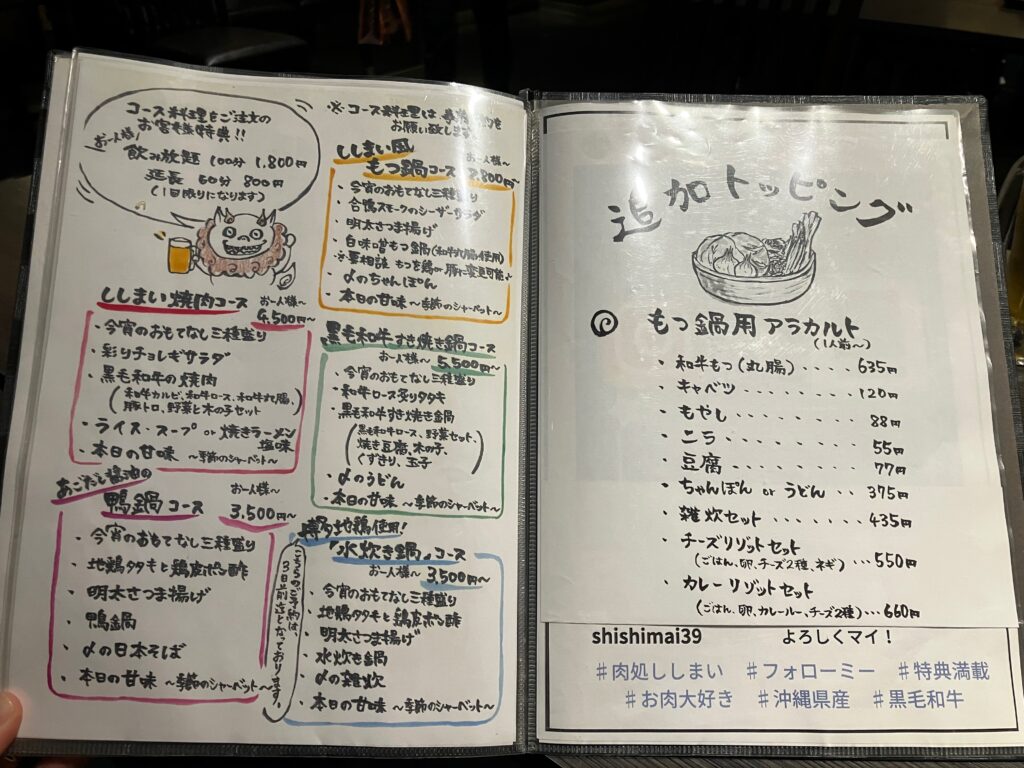 コース料理をご注文の
お客様特典!!
お一人様
飲み放題 100分 1,800円
延長 60分 800円
(1回限りになります)
ししまい焼肉コース お一人様~
4,500円~
・今宵のおもてなし三種盛り
・彩りチョレギサラダ
・黒毛和牛の焼肉
(和牛カルビ、和牛ロース、和牛丸腸、
豚トロ、野菜と木の子セット)
・ライス・スープ or 焼きラーメン
塩味
・本日の甘味 ~季節のシャーベット~
あごだし醤油の
鴨鍋コース お一人様~
3,500円~
・今宵のおもてなし三種盛り
・地鶏タタキと鶏皮ポン酢
・明太さつま揚げ
・鴨鍋
・〆の日本そば
・本日の甘味 ~季節のシャーベット~
※コース料理は
お願い致します
ししまい風 お一人様~
もつ鍋コース 2,800円~
・今宵のおもてなし三種盛り
・合鴨スモークのシーザーサラダ
・明太さつま揚げ
・白味噌もつ鍋(和牛丸腸使用)
※要相談 もつを鶏or豚に変更可能
・〆のちゃんぽん
・本日の甘味 ~季節のシャーベット~
黒毛和牛すき焼き鍋コース
お一人様~ 5,500円~
・今宵のおもてなし三種盛り
・和牛ロース炙りタタキ
・黒毛和牛すき焼き鍋
(黒毛和牛ロース、野菜セット、
焼き豆腐、木の子、
くずきり、玉子)
・〆のうどん
・本日の甘味 ~季節のシャーベット~
博多地鶏使用!
「水炊き鍋」コース
お一人様~ 3,500円~
・今宵のおもてなし三種盛り
・地鶏タタキと鶏皮ポン酢
・明太さつま揚げ
・水炊き鍋
・〆の雑炊
・本日の甘味 ~季節のシャーベット~
こちらのご予約は、
3日前迄となっております。
追加トッピング
もつ鍋用アラカルト
(1人前~)
・和牛もつ(丸腸)....635円
・キャベツ.........120円
・もやし..........88円
・ニラ...........55円
・豆腐...........77円
・ちゃんぽん or うどん..375円
・雑炊セット.......435円
・チーズリゾットセット
(ごはん、卵、チーズ2種、ネギ)...550円
・カレーリゾットセット
(ごはん、卵、カレールー、チーズ2種)...660円
shishimai39 よろしくマイ!
#肉処ししまい #フォローミー #特典満載
#お肉大好き #沖縄県産 #黒毛和牛